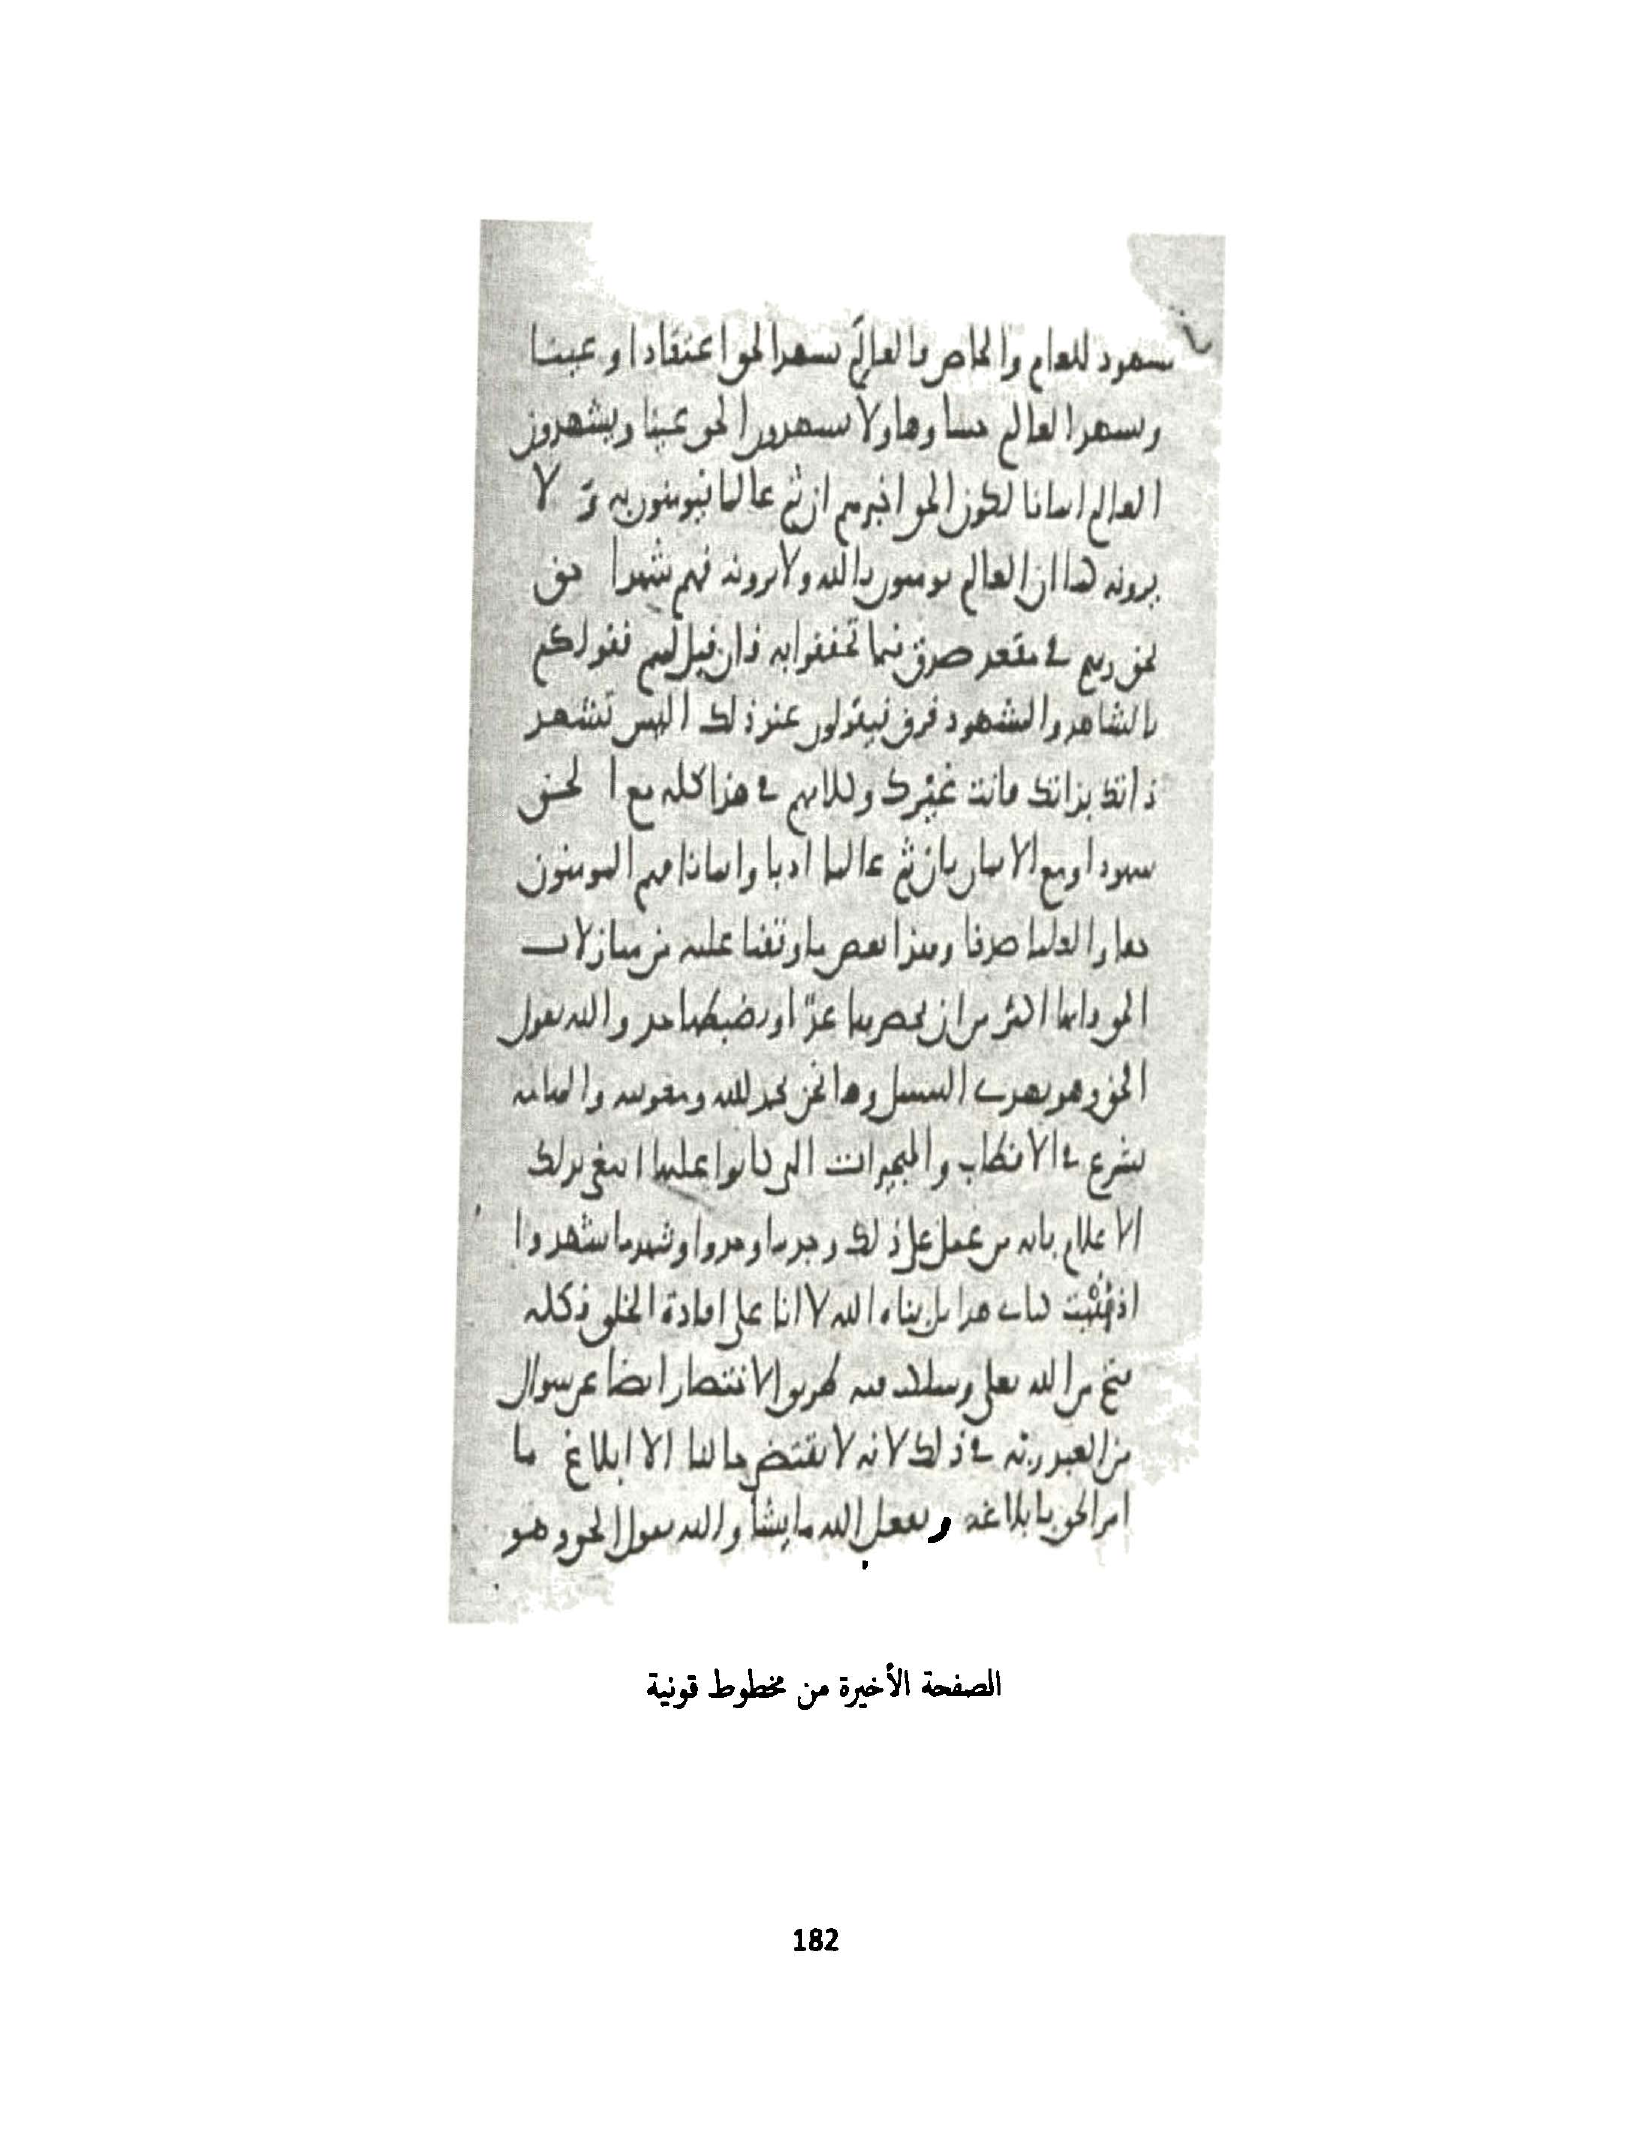 مشهود للعام والخاص والعالم يشهد الحق اعتقادا وعينا
ويشهد العالم حسا وها ولا يشهدون الحق عينا ويشهدون
العالم ايمانا لكون الحق اخبرهم ان ثم عالما فيومنون به و لا
يرونه كما ان العالم يومنون بالله ولا يرونه فهم شهدا حق
لحق في مقعد صدق فيما تحققوا به فان قيل لهم فقولكم
بالشاهد والمشهود فرق فيقولون عند ذلك اليس تشهد
ذاتك بذاتك فانت غيرك وكلامهم في هذا كله مع الحق
شهودا ومع الايمان بان ثم عالما ادبا وايمانا فهم المومنون
والعلما صدقا وهذا بعض ما وقفنا عليه من منازلات
الحق وانها اكثر من ان يحصرها عد او يضبطها حد والله يقول
الحق وهو يهدي السبيل وها نحن بحمد الله ومعونته والهامه
نشرع في الاقطاب والهجيرات التي كانوا عليها ابتغي بذلك
الاعلام بانه من عمل على ذلك وجد ما وجدوا وشهد ما شهدوا
اذ كتاب هذا بل بناه الله لا انا على افادة الخلق فكله
فتح من الله تعلى وسلكت فيه طريق الاختصار ايضا عن سوال
من العبد ربه في ذلك لانه لا يقتضي حالنا الا ابلاغ ما
امر الحق بابلاغه ويفعل الله ما يشا والله يقول الحق وهو
الصفحة الأخيرة من مخطوط قونية
182